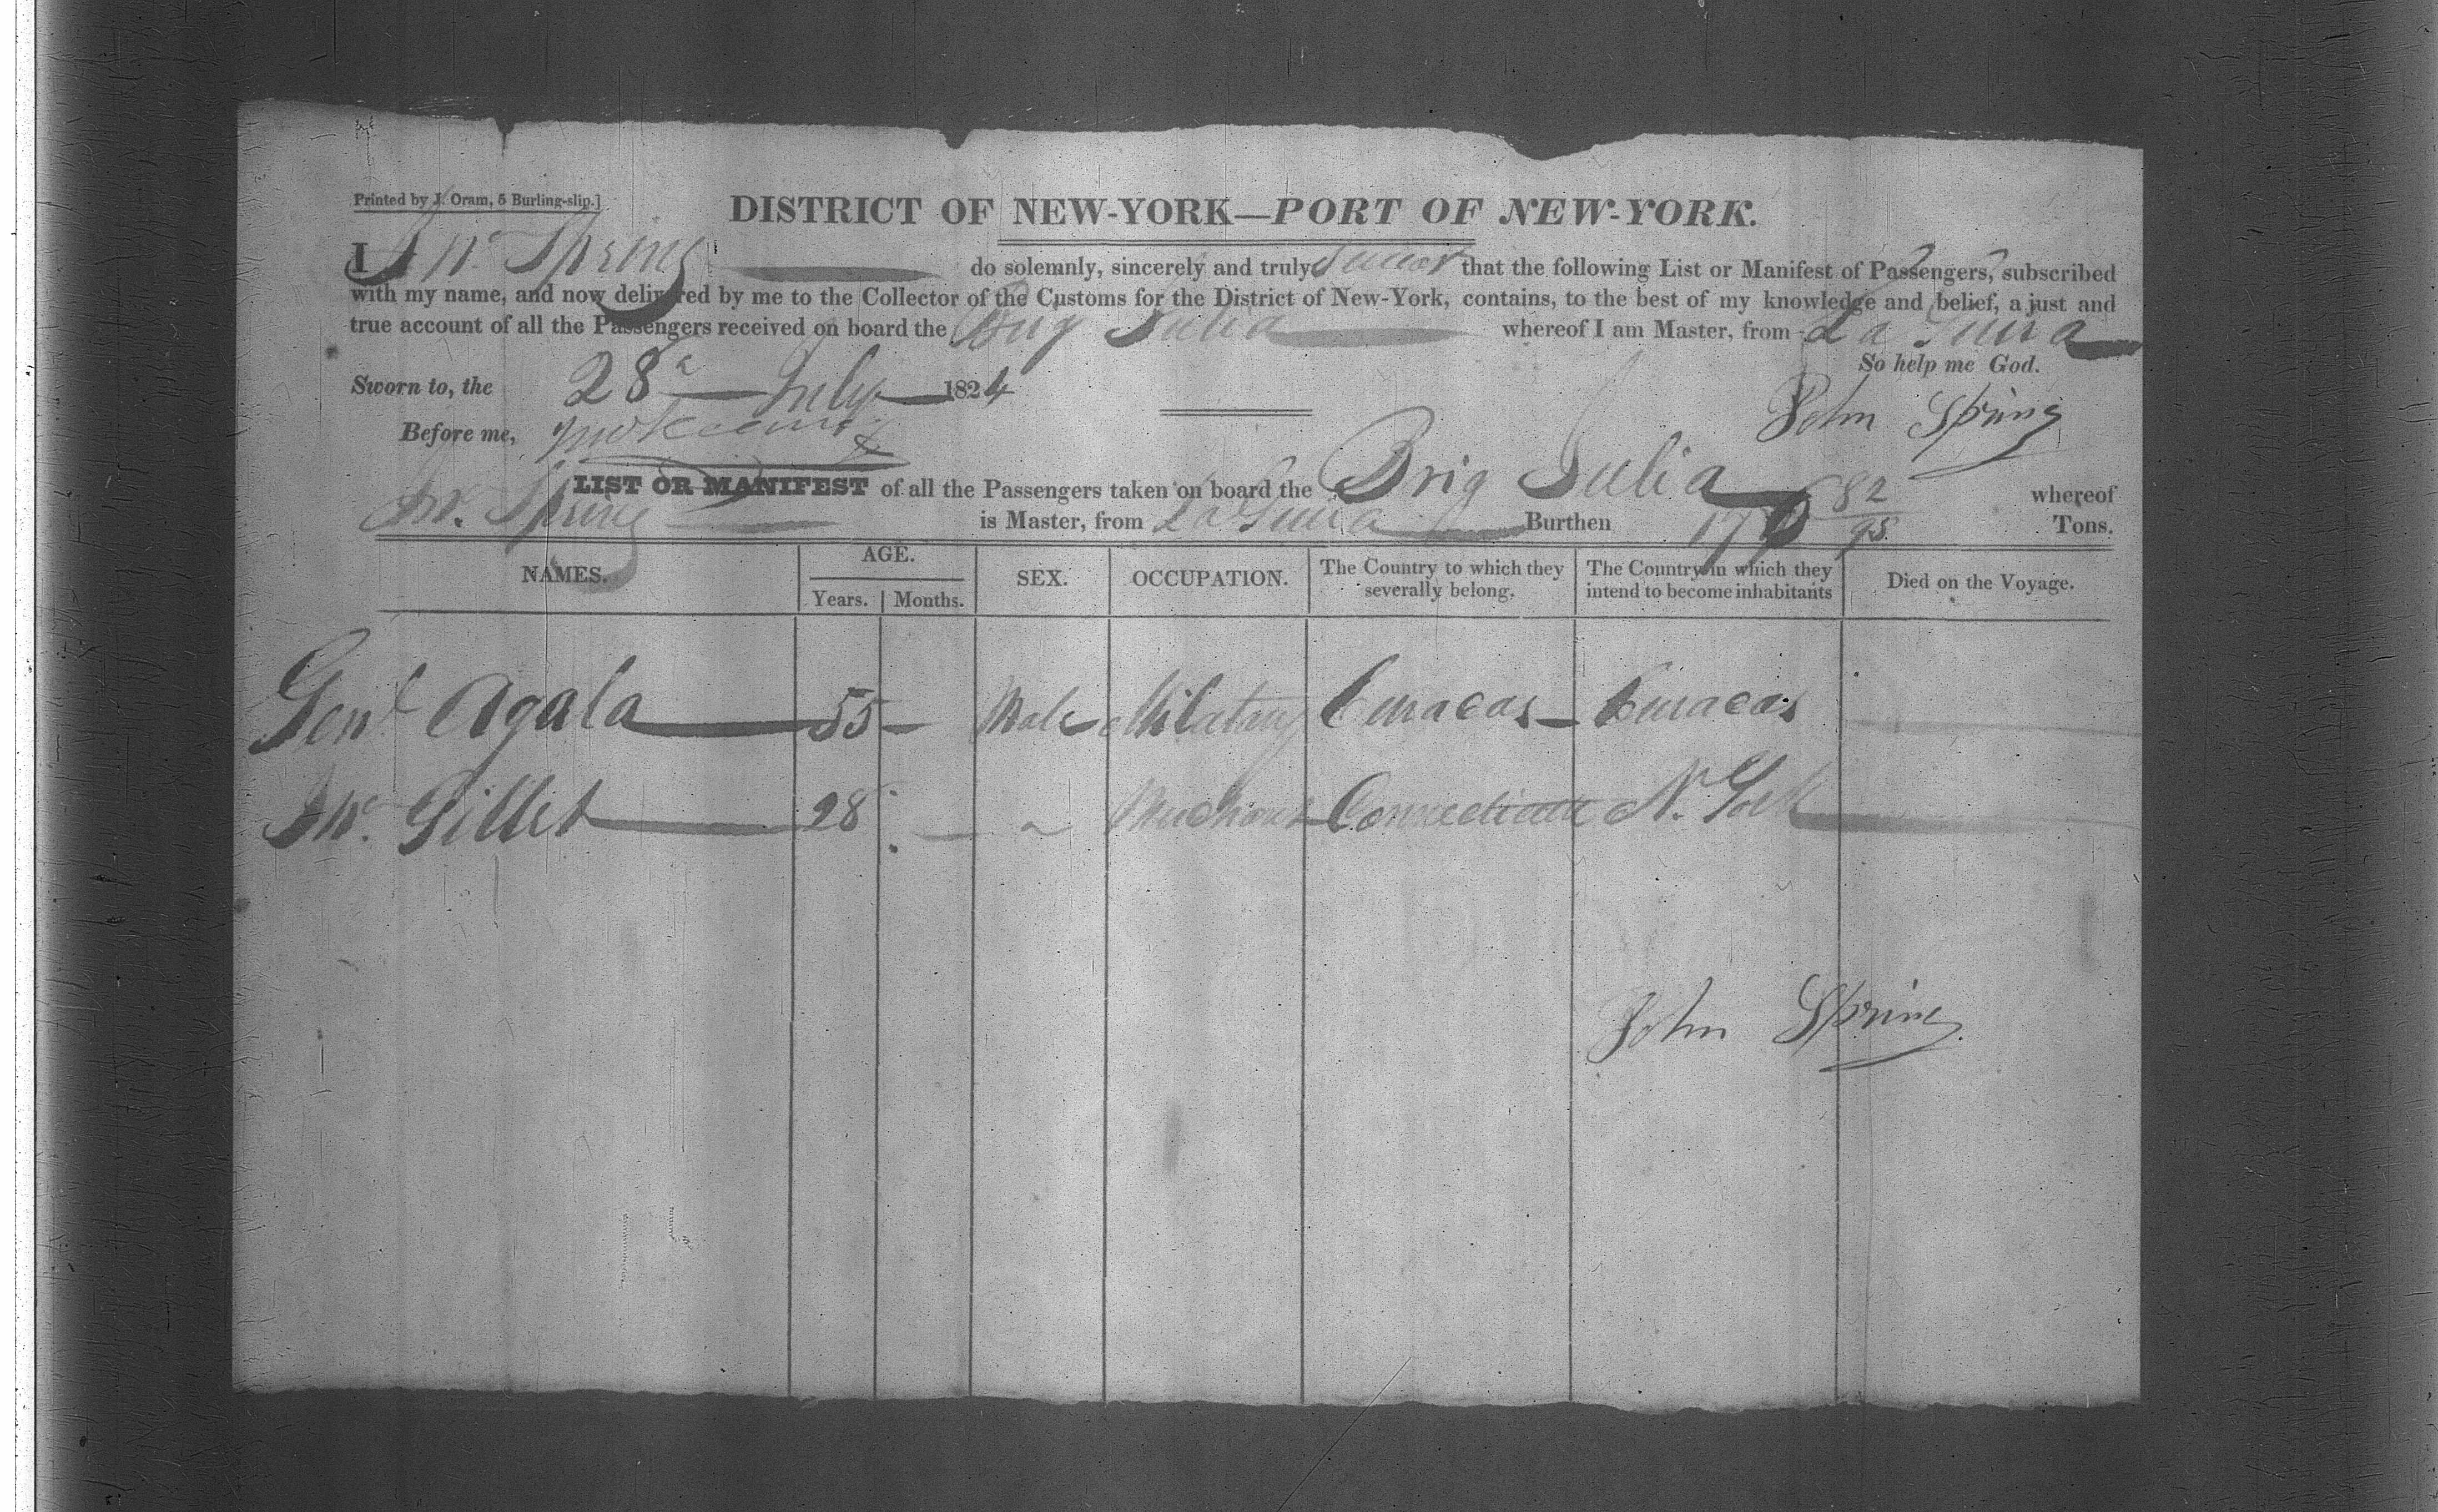 Printed by J. Oram, 5 Burling-slip.]
DISTRICT OF NEW-YORK—PORT OF NEW-YORK.
I Jno. Spring do solemnly, sincerely and truly Swear that the following List or Manifest of Passengers, subscribed
with my name, and now delivered by me to the Collector of the Customs for the District of New-York, contains, to the best of my knowledge and belief, a just and
true account of all the Passengers received on board the Brig Julia whereof I am Master, from La Guira
So help me God.
Sworn to, the 28 July 1824
John Spring
Before me,
LIST OR MANIFEST of all the Passengers taken on board the Brig Julia whereof
Jno. Spring is Master, from La Guira Burthen 176 82/95 Tons.
NAMES. AGE. Years. Months. SEX. OCCUPATION. The Country to which they severally belong. The Country in which they intend to become inhabitants Died on the Voyage.
Genl Agala 55 — Male Militany Curacas Curacas
Jno. Gillet 28 — " Merchant Connecticutt N. York
John Spring